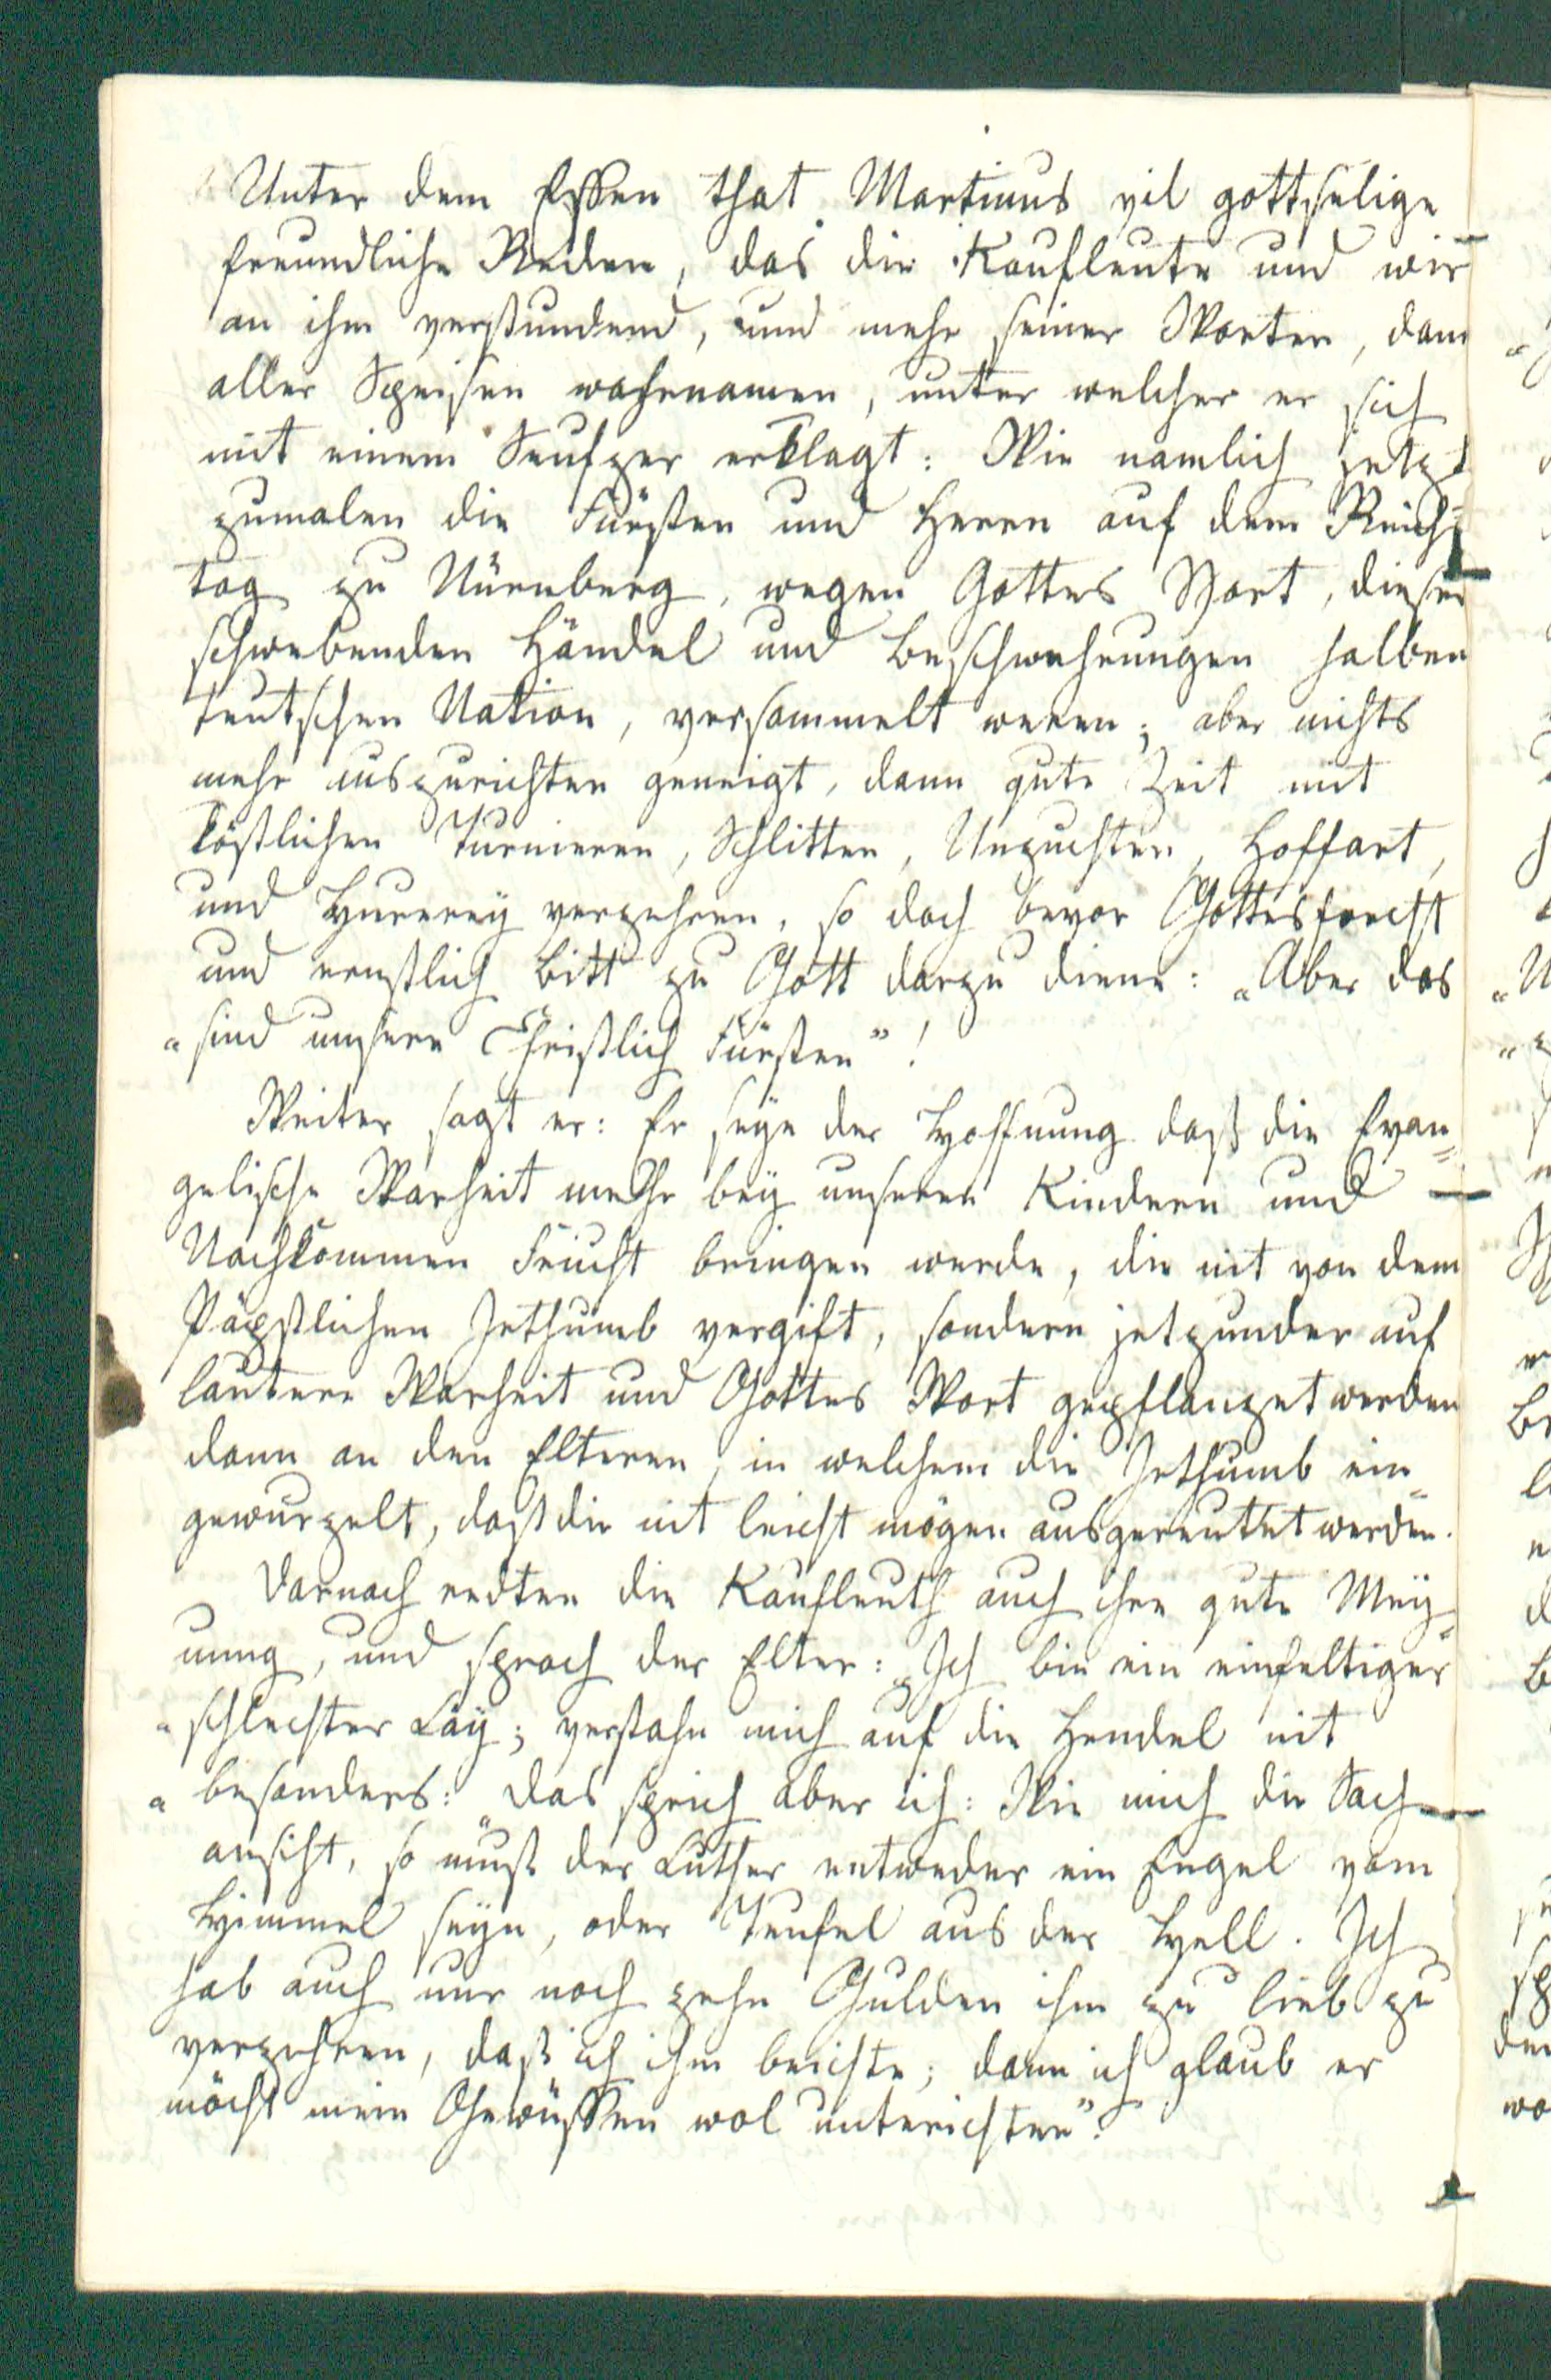 Unter dem Essen that Martinus vil gottselige
freundliche Reden, das die Kaufleute und wir
an ihm verstundend, und mehr seiner Worten, dann
aller Speisen wahrnamen, unter welcher er sich
mit einem Seufzer erklagt: Wie namlich jetzt
zumalen die Fürsten und Herren auf dem Reichs-
tag zu Nürnberg, wegen Gottes Wort, diesen
schwebenden Händel und Beschwehrungen halben
teutschen Nation, versammelt weren; aber nichts
mehr auszurichten geneigt, dann gute Zeit mit
köstlichen Turnieren, Schlitten, Unzuchten, Hoffart,
und Hurerey verzehren, so doch bevor Gottesforcht
und ernstlich Bitt zu Gott darzu diene: „Aber das
„sind unsere Christlich Fürsten"!
Weiter sagt er: Er seye der Hoffnung daß die Evan-
gelische Warheit mehr bey unseren Kindern und
Nachkommen Frucht bringen werde, die nit von dem
Päpstlichen Irthumb vergift, sondern jetzunder auf
lautere Warheit und Gottes Wort gepflanzet werden
dann an den Elteren, in welchem die Irthumb ein-
gewurzelt, daß die nit leicht mögen ausgereuttet werden.
Darnach redten die Kaufleuth auch ihre gute Mey-
nung, und sprach der Elter: „Ich bin ein einfeltiger
„schlechter Lay; verstahn mich auf die Hendel nit
„besonders: das sprich aber ich: Wie mich die Sach
ansiht, so muß der Luther entweder ein Engel vom
Himmel seyn, oder Teufel aus der Hell. Ich
hab auch nur noch zehn Gulden ihm zu lieb zu
verzehren, daß ich ihm beichte; dann ich glaub er
möcht mein Gewüssen wol unterichten".